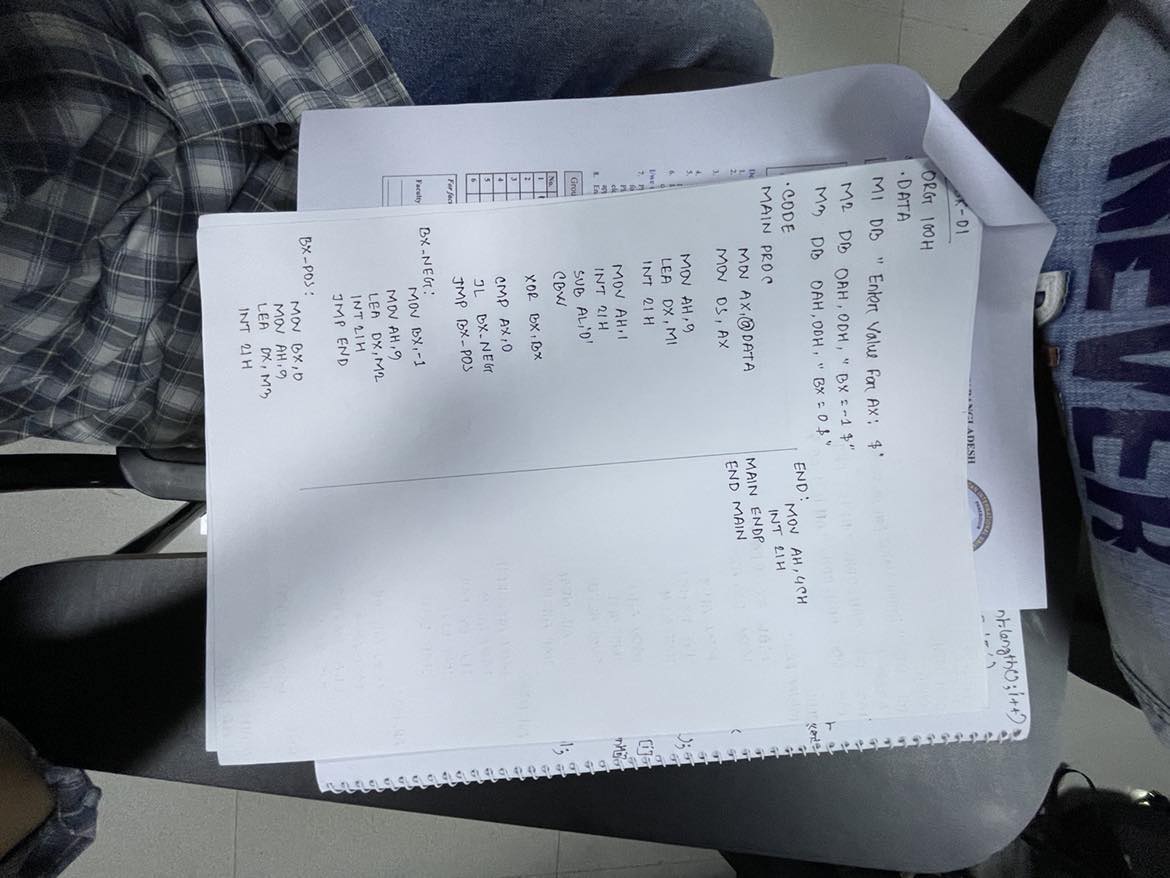 NEVER
BANGLADESH
nt.length(); i++)
K-01
ORG 100H
.DATA
M1 DB " Enter Value For AX: $"
M2 DB 0AH, 0DH, " BX = -1 $"
M3 DB 0AH, 0DH, " BX = 0 $"
.CODE
MAIN PROC
MOV AX, @DATA
MOV DS, AX
MOV AH, 9
LEA DX, M1
INT 21H
MOV AH, 1
INT 21H
SUB AL, '0'
CBW
XOR BX, BX
CMP AX, 0
JL BX-NEG
JMP BX-POS
BX-NEG:
MOV BX, -1
MOV AH, 9
LEA DX, M2
INT 21H
JMP END
BX-POS:
MOV BX, 0
MOV AH, 9
LEA DX, M3
INT 21H
END:
MOV AH, 4CH
INT 21H
MAIN ENDP
END MAIN
Grou
No.
1
2
3
4
5
6
For facu
Faculty